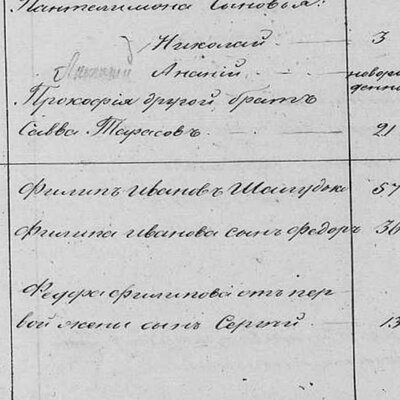 Пантелимона сыновья:
Николай 3
Ананий новоро
Прокофія другой братъ денной
Савва Тарасовъ 21
Филипъ Ивановъ 57
Филипа Иванова сынъ Федоръ 36
Федора Филипова отъ пер
вой жены сынъ Сергѣй 13